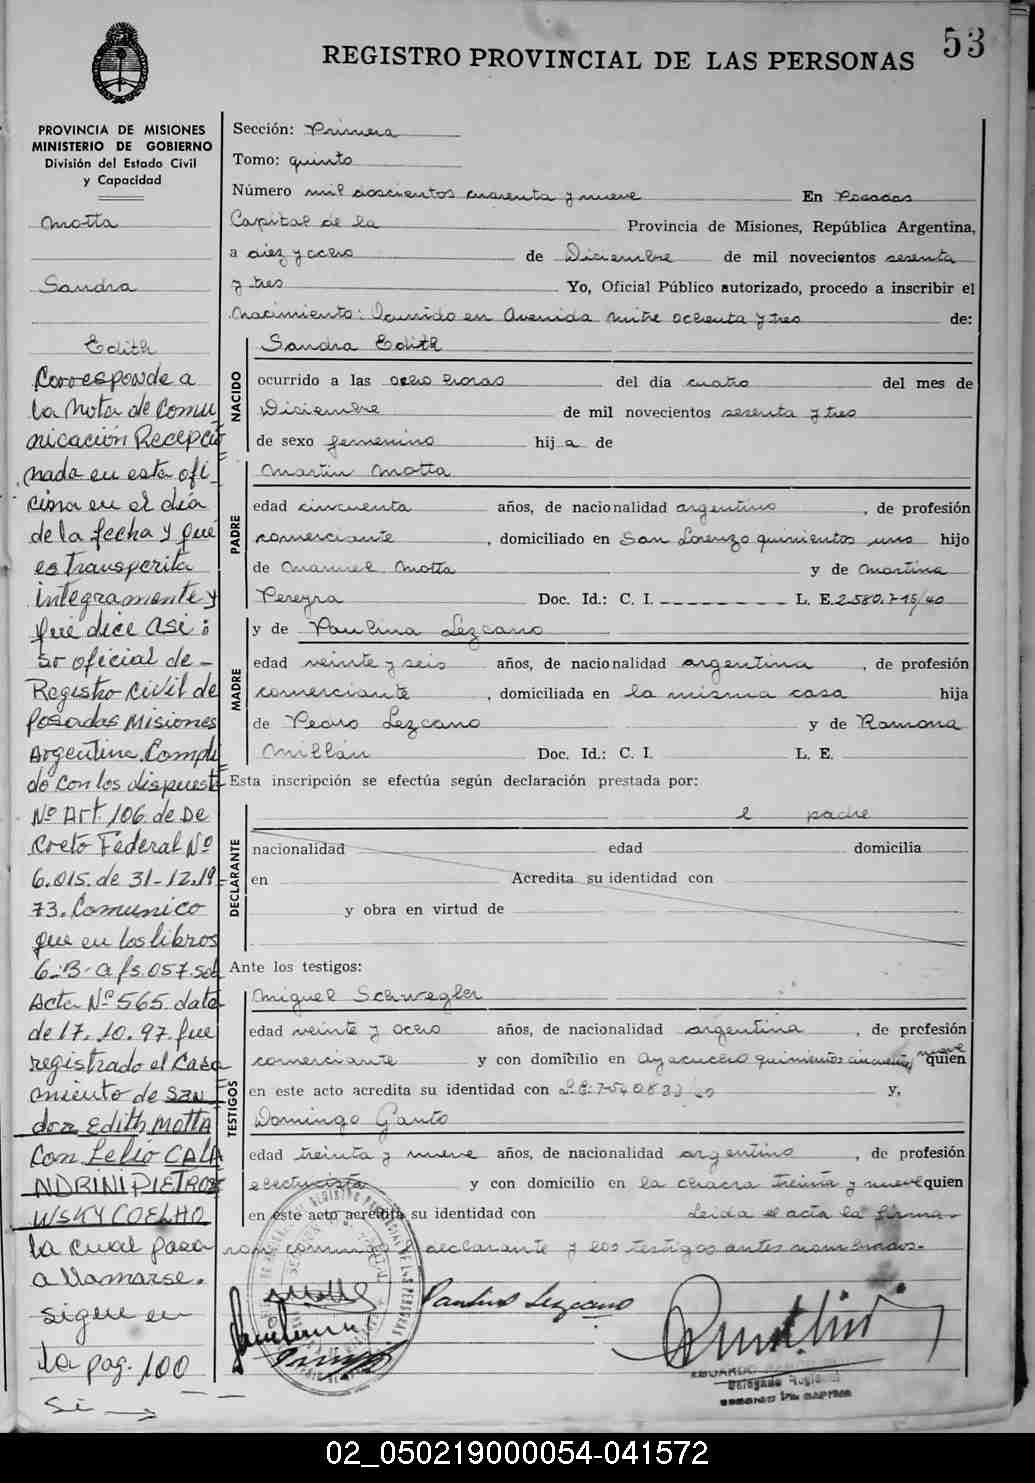 53
REGISTRO PROVINCIAL DE LAS PERSONAS
PROVINCIA DE MISIONES
MINISTERIO DE GOBIERNO
División del Estado Civil
y Capacidad
Motta
Sandra
Edith
Corresponde a
la Nota de Comu
nicación Recepcio
nada en esta ofi
cina en el día
de la fecha y que
es transperita
integramente y
que dice asi:
sr oficial de
Registro Civil de
Posadas Misiones
Argentina. Compli
do con los dispuest
Nº Art. 106. de De
creto Federal Nº
6.015. de 31-12.19
73. Comunico
que en los libros
6-B- a fs. 057. sob
Acta Nº 565. data
de 17. 10. 97. fue
registrado el Casa
miento de San
dra Edith Motta
Con Lelio CALA
NDRINI PIETROS
WSKY COELHO
la cual pasa
a llamarse.
sigue en
la pag. 100
Si
Sección: Primera
Tomo: quinto
Número mil doscientos cuarenta y nueve En Posadas
Capital de la Provincia de Misiones, República Argentina,
a diez y ocho de Diciembre de mil novecientos sesenta
y tres Yo, Oficial Público autorizado, procedo a inscribir el
Nacimiento: Ocurrido en Avenida Mitre ochenta y tres de:
NACIDO
Sandra Edith
ocurrido a las ocho horas del día cuatro del mes de
Diciembre de mil novecientos sesenta y tres
de sexo femenino hij a de
PADRE
Martin Motta
edad cincuenta años, de nacionalidad argentino, de profesión
comerciante, domiciliado en San Lorenzo quinientos uno hijo
de Manuel Motta y de Martina
Pereyra Doc. Id.: C. I. L. E. 2.580.715/40
MADRE
y de Paulina Lezcano
edad veinte y seis años, de nacionalidad argentina, de profesión
comerciante, domiciliada en la misma casa hija
de Pedro Lezcano y de Ramona
Millán Doc. Id.: C. I. L. E.
Esta inscripción se efectúa según declaración prestada por:
DECLARANTE
el padre
nacionalidad edad domicilia
en Acredita su identidad con
y obra en virtud de
Ante los testigos:
TESTIGOS
Miguel Schwegler
edad veinte y ocho años, de nacionalidad argentina, de profesión
comerciante y con domicilio en Ayacucho quinientos cincuenta nueve quien
en este acto acredita su identidad con y,
Domingo Ganto
edad treinta y nueve años, de nacionalidad argentino, de profesión
electricista y con domicilio en la chacra treinta y nueve quien
en este acto acredita su identidad con Leida el acta la firma-
ron conmigo declarante y los testigos antes nombrados.-
Paulina Lezcano
02_050219000054-041572